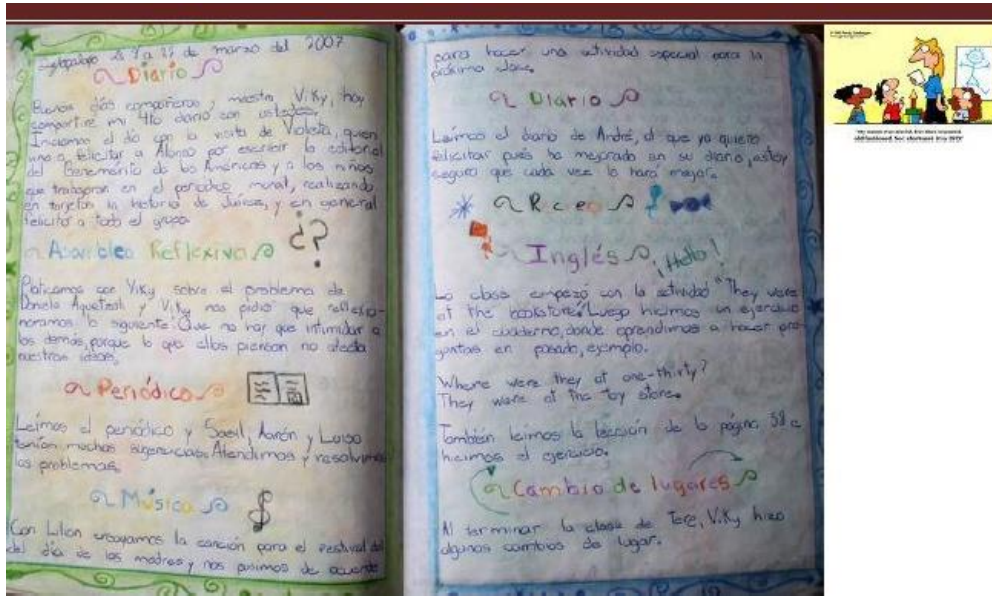 de marzo del 2007
Diario
Buenos días compañeros y maestra Viky, hoy
compartiré mi 4to diario con ustedes.
Iniciamos el día con la visita de Violeta, quien
vino a felicitar a Alonso por escribir la editorial
del Benemérito de las Américas y a los niños
que trabajaron en el periodico mural, realizando
en tarjetas la historia de Juárez, y en general
felicitó a todo el grupo.
Asamblea Reflexiva ¿?
Platicamos con Viky sobre el problema de
Daniela y Viky nos pidió que reflexio-
naramos lo siguiente: Que no hay que intimidar a
los demás, porque lo que ellos piensan no afecta
nuestras ideas.
Periódico
Leímos el periódico y Saeil, Aarón y Luisa
tenían muchas sugerencias. Atendimos y resolvimos
los problemas.
Música
Con Lilian ensayamos la canción para el festival del
del día de las madres y nos pusimos de acuerdo
para hacer una actividad especial para la
próxima clase.
Diario
Leímos el diario de André, al que yo quiero
felicitar pués ha mejorado en su diario, estoy
segura que cada vez lo hará mejor.
Receo
Inglés ¡Hello!
La clase empezó con la actividad "They were
at the bookstore". Luego hicimos un ejercicio
en el cuaderno, donde aprendimos a hacer pre-
guntas en pasado, ejemplo.
Where were they at one-thirty?
They were at the toy store.
También leímos la lección de la página 58 e
hicimos el ejercicio.
Cambio de lugares
Al terminar la clase de Tere, Viky hizo
algunos cambios de lugar.